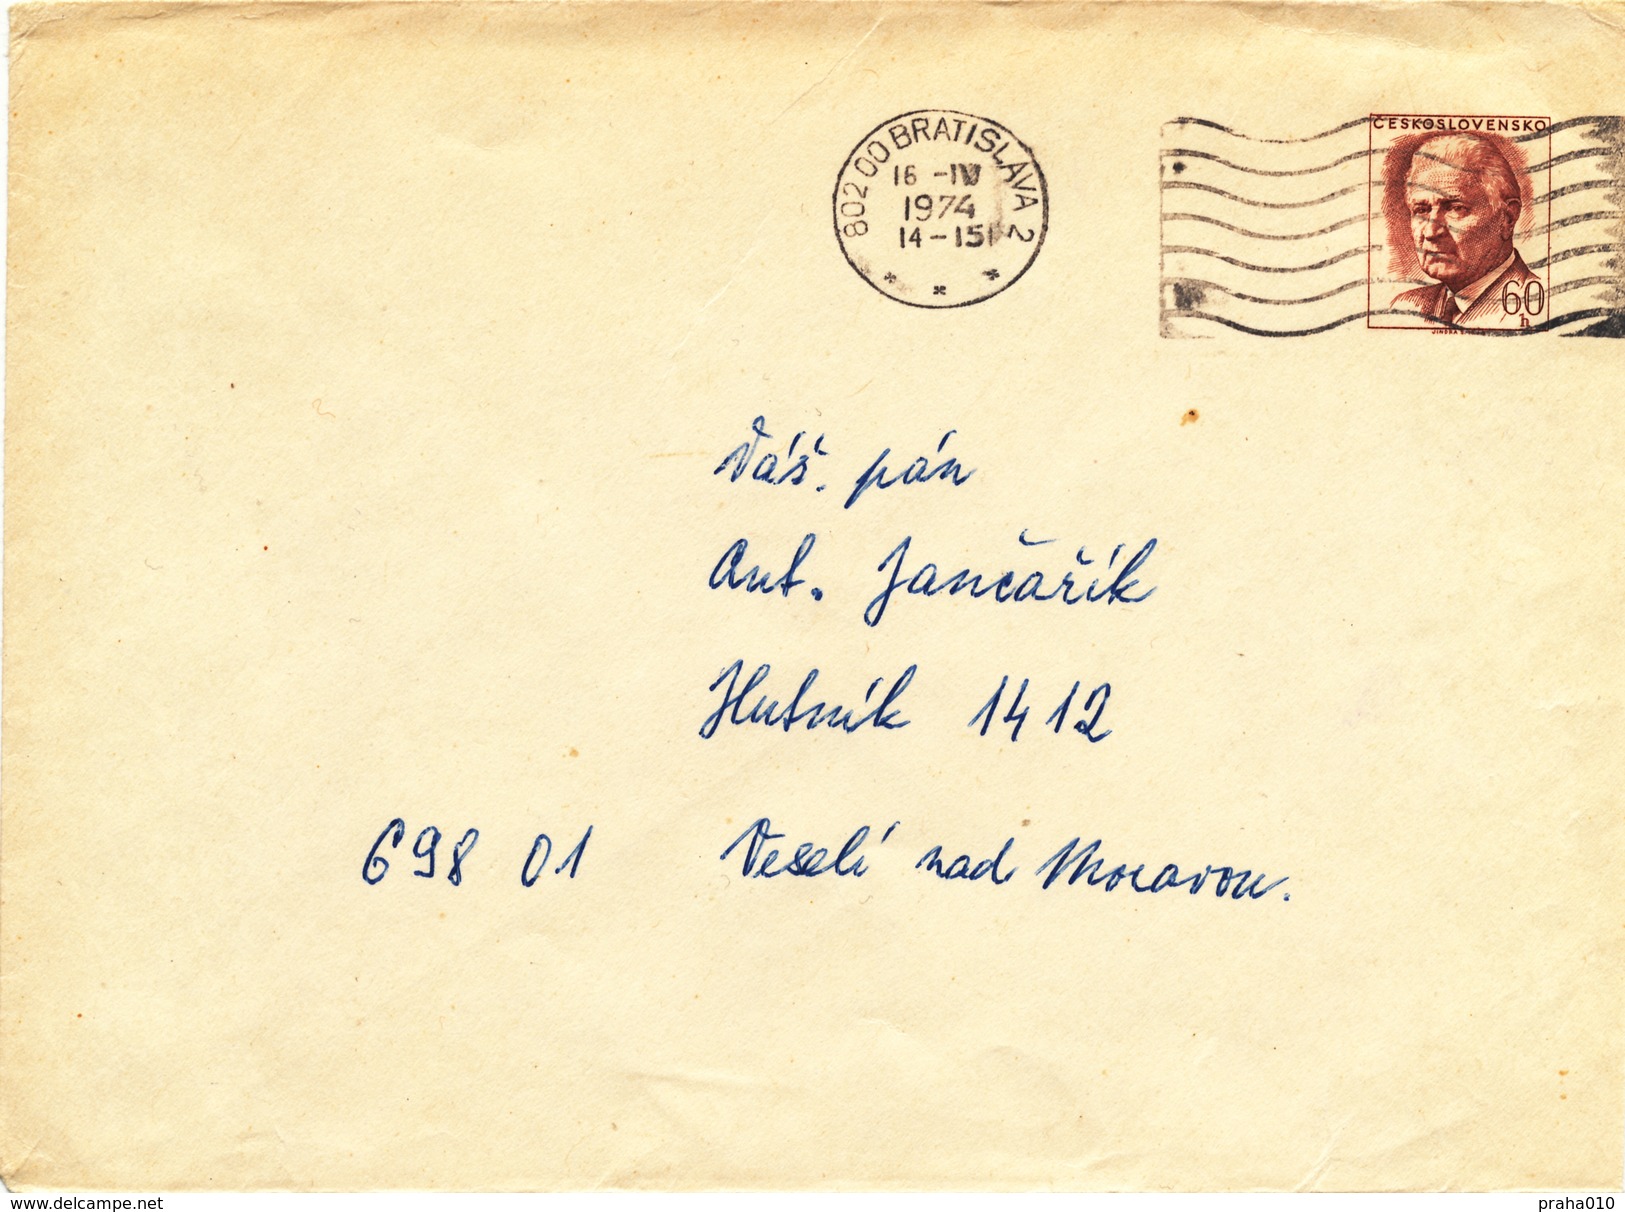 ČESKOSLOVENSKO
802 00 BRATISLAVA 2
16 -IV
1974
14-15
60
h
Váš. pán
Ant. Jančařík
Hutník 1412
698 01 Veselí nad Moravou.
www.delcampe.net
praha010